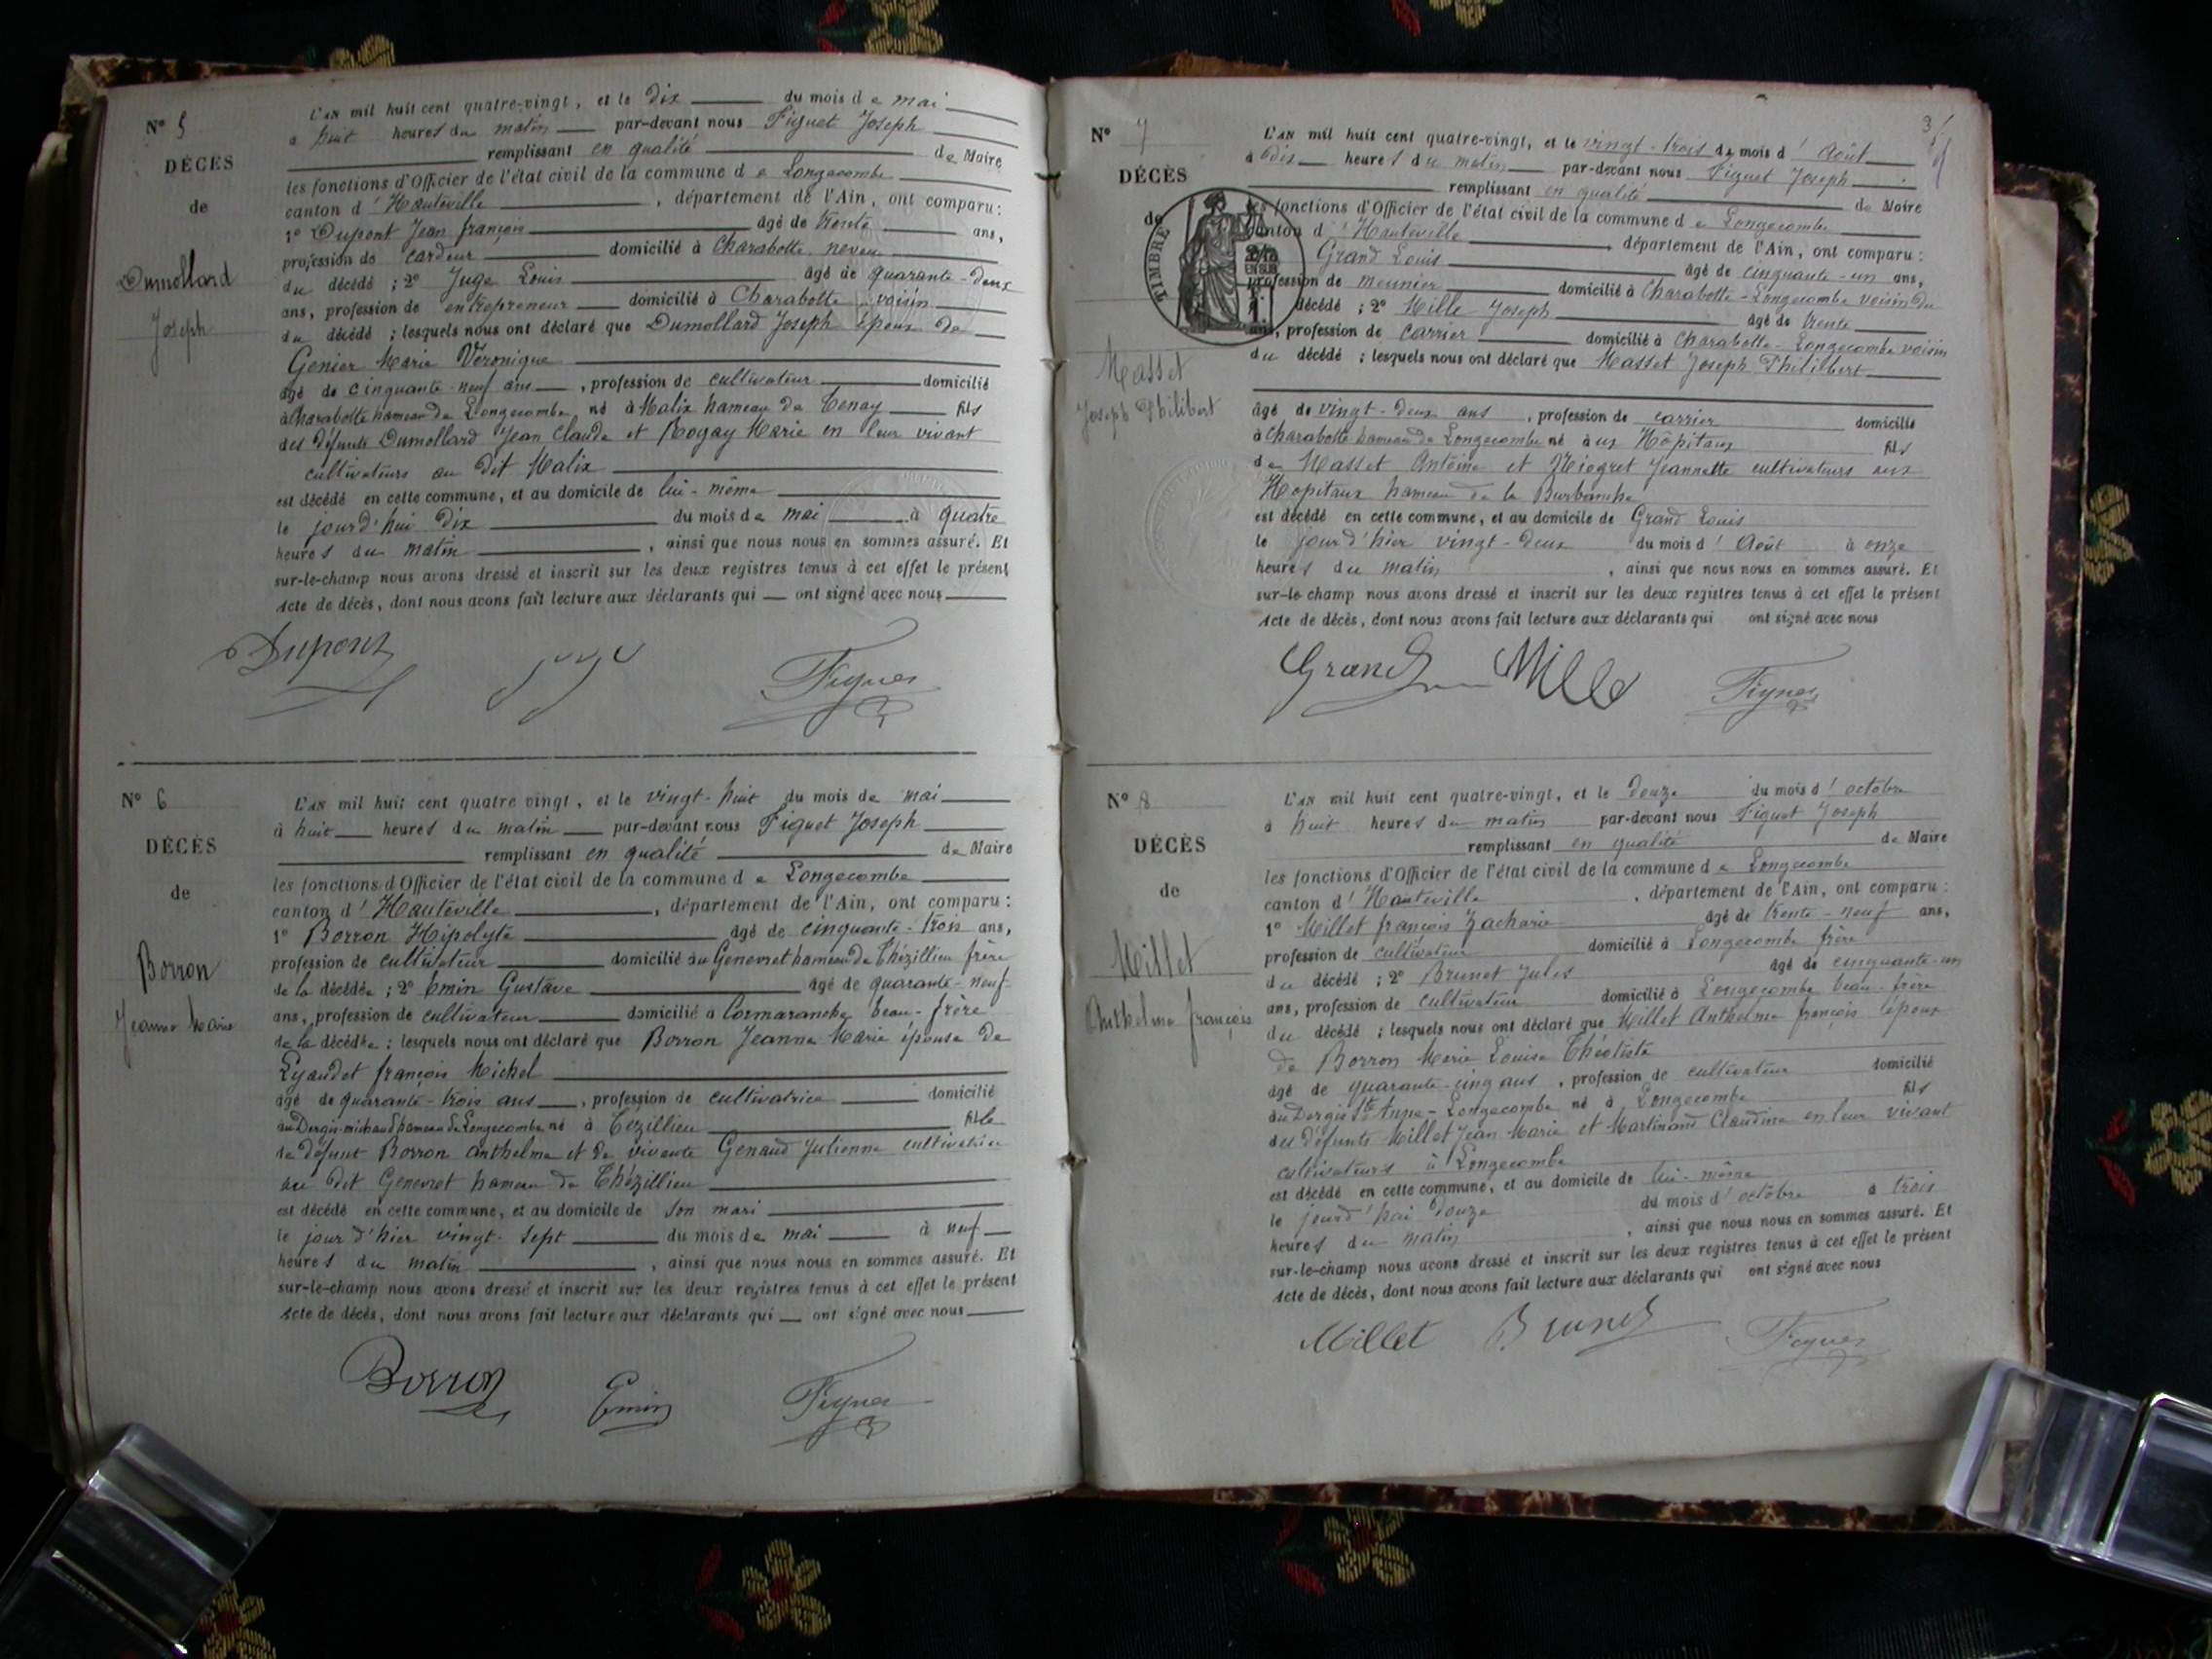 N° 5
DÉCÈS
de
Dumollard
Joseph
L'AN mil huit cent quatre-vingt, et le dix du mois de mai
à huit heures du matin par-devant nous Figuet Joseph
remplissant en qualité de Maire
les fonctions d'Officier de l'état civil de la commune de Longecombe
canton d'Hauteville, département de l'Ain, ont comparu:
1° Dupont Jean françois âgé de trente ans,
profession de cardeur domicilié à Charabotte neveu
du décédé ; 2° Juge Louis âgé de quarante-deux
ans, profession de entrepreneur domicilié à Charabotte voisin
du décédé ; lesquels nous ont déclaré que Dumollard Joseph époux de
Genier Marie Véronique
âgé de cinquante-neuf ans, profession de cultivateur domicilié
à Charabotte hameau de Longecombe né à Malix hameau de Tenay fils
des défunts Dumollard Jean Claude et Rogay Marie en leur vivant
cultivateurs au dit Malix
est décédé en cette commune, et au domicile de lui-même
le jourd'hui dix du mois de mai à quatre
heures du matin, ainsi que nous nous en sommes assuré. Et
sur-le-champ nous avons dressé et inscrit sur les deux registres tenus à cet effet le présent
Acte de décès, dont nous avons fait lecture aux déclarants qui ont signé avec nous
Dupont Juge Figuet
N° 6
DÉCÈS
de
Borron
Jeanne Marie
L'AN mil huit cent quatre-vingt, et le vingt-huit du mois de mai
à huit heures du matin par-devant nous Figuet Joseph
remplissant en qualité de Maire
les fonctions d'Officier de l'état civil de la commune de Longecombe
canton d'Hauteville, département de l'Ain, ont comparu:
1° Borron Hipolyte âgé de cinquante-trois ans,
profession de cultivateur domicilié au Genevret hameau de Thézillieu frère
de la décédée ; 2° Emin Gustave âgé de quarante-neuf
ans, profession de cultivateur domicilié à Cormaranche beau-frère
de la décédée ; lesquels nous ont déclaré que Borron Jeanne Marie épouse de
Lyaudet françois Michel
âgé de quarante-trois ans, profession de cultivatrice domicilié
au Dergis-michaud hameau de Longecombe né à Tézillieu fille
de défunt Borron anthelme et de vivante Genaud Julienne cultivatrice
au dit Genevret hameau de Thézillieu
est décédé en cette commune, et au domicile de son mari
le jour d'hier vingt-sept du mois de mai à neuf
heures du matin, ainsi que nous nous en sommes assuré. Et
sur-le-champ nous avons dressé et inscrit sur les deux registres tenus à cet effet le présent
Acte de décès, dont nous avons fait lecture aux déclarants qui ont signé avec nous
Borron Emin Figuet
N° 7
DÉCÈS
de
TIMBRE
Masset
Joseph Philibert
L'AN mil huit cent quatre-vingt, et le vingt-trois du mois d'Août
à dix heures du matin par-devant nous Figuet Joseph
remplissant en qualité de Maire
les fonctions d'Officier de l'état civil de la commune de Longecombe
canton d'Hauteville département de l'Ain, ont comparu:
Grand Louis âgé de cinquante-un ans,
profession de meunier domicilié à Charabotte-Longecombe voisin du
décédé ; 2° Mille Joseph âgé de trente
ans, profession de carrier domicilié à Charabotte-Longecombe voisin
du décédé ; lesquels nous ont déclaré que Masset Joseph Philibert
âgé de vingt-deux ans, profession de carrier domicilié
à Charabotte hameau de Longecombe né aux Hôpitaux fils
de Masset Antoine et Miegret Jeannette cultivateurs aux
Hopitaux hameau de la Burbanche
est décédé en cette commune, et au domicile de Grand Louis
le jour d'hier vingt-deux du mois d'Août à onze
heures du matin, ainsi que nous nous en sommes assuré. Et
sur-le-champ nous avons dressé et inscrit sur les deux registres tenus à cet effet le présent
Acte de décès, dont nous avons fait lecture aux déclarants qui ont signé avec nous
Grand Mille Figuet
N° 8
DÉCÈS
de
Millet
Anthelme françois
L'AN mil huit cent quatre-vingt, et le douze du mois d'octobre
à huit heures du matin par-devant nous Figuet Joseph
remplissant en qualité de Maire
les fonctions d'Officier de l'état civil de la commune de Longecombe
canton d'Hauteville, département de l'Ain, ont comparu:
1° Millet françois Zacharie âgé de trente-neuf ans,
profession de cultivateur domicilié à Longecombe frère
du décédé ; 2° Brunet Jules âgé de cinquante-un
ans, profession de cultivateur domicilié à Longecombe beau-frère
du décédé ; lesquels nous ont déclaré que Millet Anthelme françois époux
de Borron Marie Louise Théotiste
âgé de quarante-cinq ans, profession de cultivateur domicilié
au Dergis Ste Anne-Longecombe né à Longecombe fils
du défunts Millet Jean Marie et Martinand Claudine en leur vivant
cultivateurs à Longecombe
est décédé en cette commune, et au domicile de lui-même
le jourd'hui douze du mois d'octobre à trois
heures du matin, ainsi que nous nous en sommes assuré. Et
sur-le-champ nous avons dressé et inscrit sur les deux registres tenus à cet effet le présent
Acte de décès, dont nous avons fait lecture aux déclarants qui ont signé avec nous
Millet Brunet Figuet